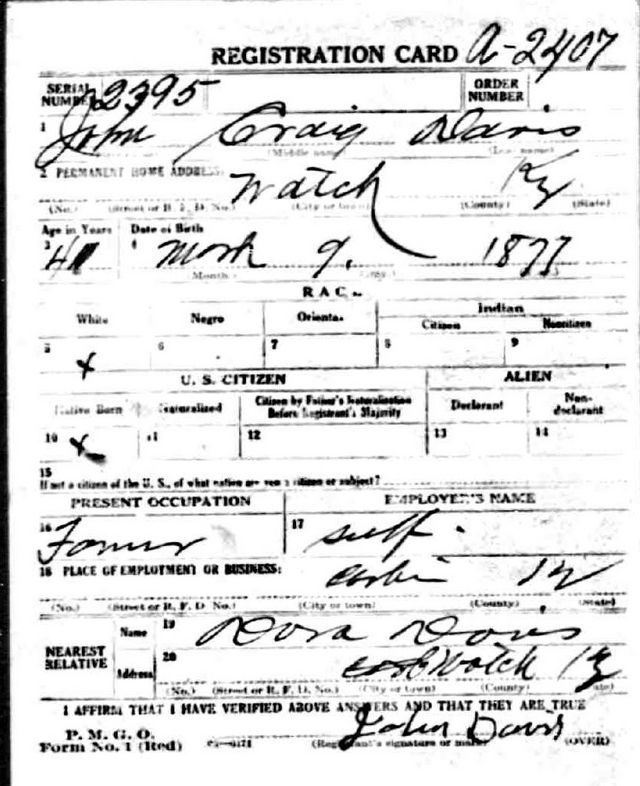 REGISTRATION CARD A-2407
SERIAL NUMBER 2395 ORDER NUMBER
1 John Craig Davis
(Middle name) (Last name)
2 PERMANENT HOME ADDRESS: Watch Ky
(No.) (Street or R. F. D. No.) (City or town) (County) (State)
Age in Years Date of Birth
3 41 4 March 9, 1877
(Month) (Day)
RACE
White Negro Oriental Indian
Citizen Noncitizen
5 x 6 7 8 9
U. S. CITIZEN ALIEN
Native Born Naturalized Citizen by Father's Naturalization Before Registrant's Majority Declarant Non-declarant
10 x 11 12 13 14
15
If not a citizen of the U. S., of what nation are you a citizen or subject?
PRESENT OCCUPATION EMPLOYER'S NAME
16 Farmer 17 self.
18 PLACE OF EMPLOYMENT OR BUSINESS: Corbin Ky
(No.) (Street or R. F. D. No.) (City or town) (County) (State)
NEAREST RELATIVE Name 19 Dora Davis
Address 20 Watch Ky
(No.) (Street or R. F. D. No.) (City or town) (County) (State)
I AFFIRM THAT I HAVE VERIFIED ABOVE ANSWERS AND THAT THEY ARE TRUE
P. M. G. O.
Form No. 1 (Red) John Davis
(Registrant's signature or mark) (OVER)